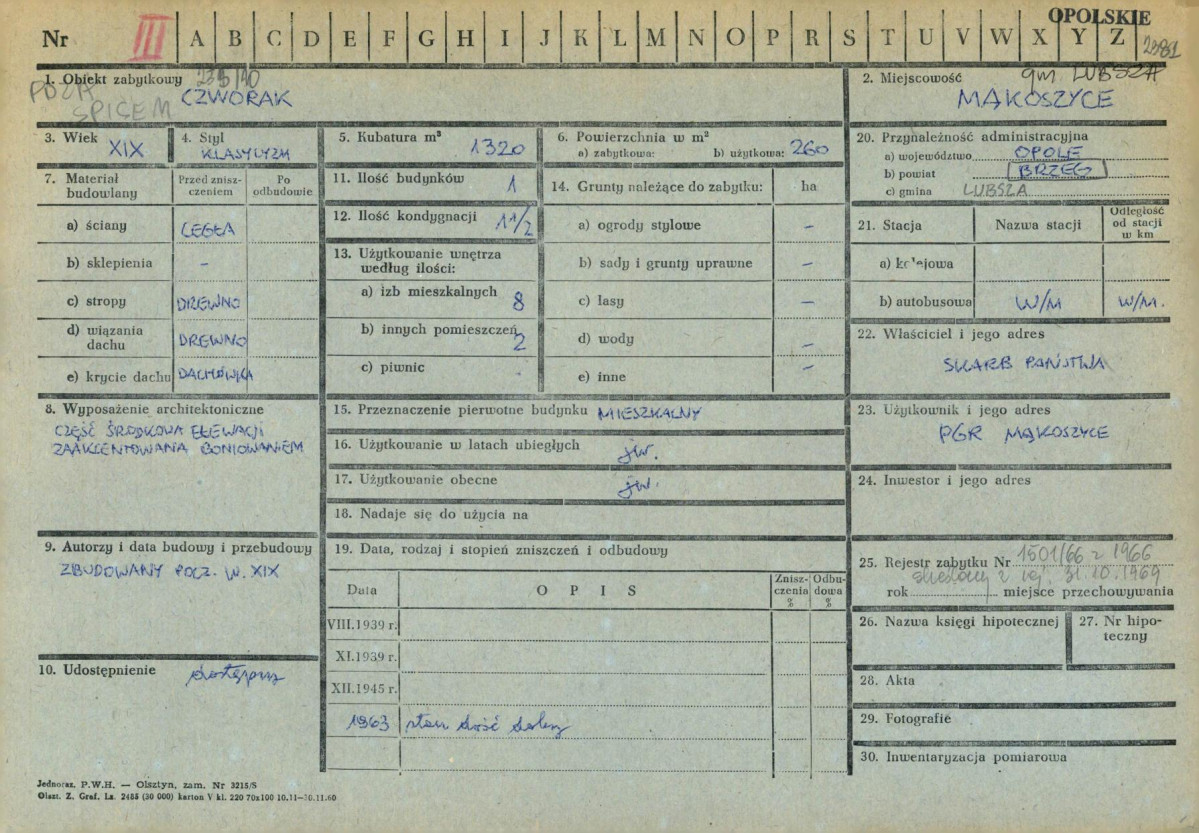 OPOLSKIE
Nr III A B C D E F G H I J K L M N O P R S T U V W X Y Z
1. Obiekt zabytkowy
POZA
SPISEM
CZWORAK
2. Miejscowość gm LUBSZA
MĄKOSZYCE
3. Wiek XIX
4. Styl
KLASYCYZM
5. Kubatura m³ 1320
6. Powierzchnia w m²
a) zabytkowa: b) użytkowa: 260
20. Przynależność administracyjna
a) województwo OPOLE
b) powiat BRZEG
c) gmina LUBSZA
7. Materiał budowlany
Przed zniszczeniem
Po odbudowie
a) ściany CEGŁA
b) sklepienia –
c) stropy DREWNO
d) wiązania dachu DREWNO
e) krycie dachu DACHÓWKA
11. Ilość budynków 1
12. Ilość kondygnacji 1 1/2
13. Użytkowanie wnętrza
według ilości:
a) izb mieszkalnych 8
b) innych pomieszczeń 2
c) piwnic -
14. Grunty należące do zabytku: ha
a) ogrody stylowe –
b) sady i grunty uprawne –
c) lasy –
d) wody –
e) inne –
21. Stacja Nazwa stacji Odległość od stacji w km
a) kolejowa
b) autobusowa W/M W/M.
22. Właściciel i jego adres
SKARB PAŃSTWA
8. Wyposażenie architektoniczne
CZĘŚĆ ŚRODKOWA ELEWACJI
ZAAKCENTOWANA BONIOWANIEM
15. Przeznaczenie pierwotne budynku MIESZKALNY
16. Użytkowanie w latach ubiegłych jw.
17. Użytkowanie obecne jw.
18. Nadaje się do użycia na
23. Użytkownik i jego adres
PGR MĄKOSZYCE
24. Inwestor i jego adres
9. Autorzy i data budowy i przebudowy
ZBUDOWANY POCZ. W. XIX
10. Udostępnienie dostępny
19. Data, rodzaj i stopień zniszczeń i odbudowy
Data OPIS Zniszczenia % Odbudowa %
VIII.1939 r.
XI.1939 r.
XII.1945 r.
1963 stan dość dobry
25. Rejestr zabytku Nr 1501/66 z 1966
skreślony z rej. 31.10.1969
rok miejsce przechowywania
26. Nazwa księgi hipotecznej
27. Nr hipoteczny
28. Akta
29. Fotografie
30. Inwentaryzacja pomiarowa
Jednoraz. P.W.H. — Olsztyn, zam. Nr 3215/S
Olszt. Z. Graf. Lz. 2485 (30 000) karton V kl. 220 70x100 10.11—30.11.60